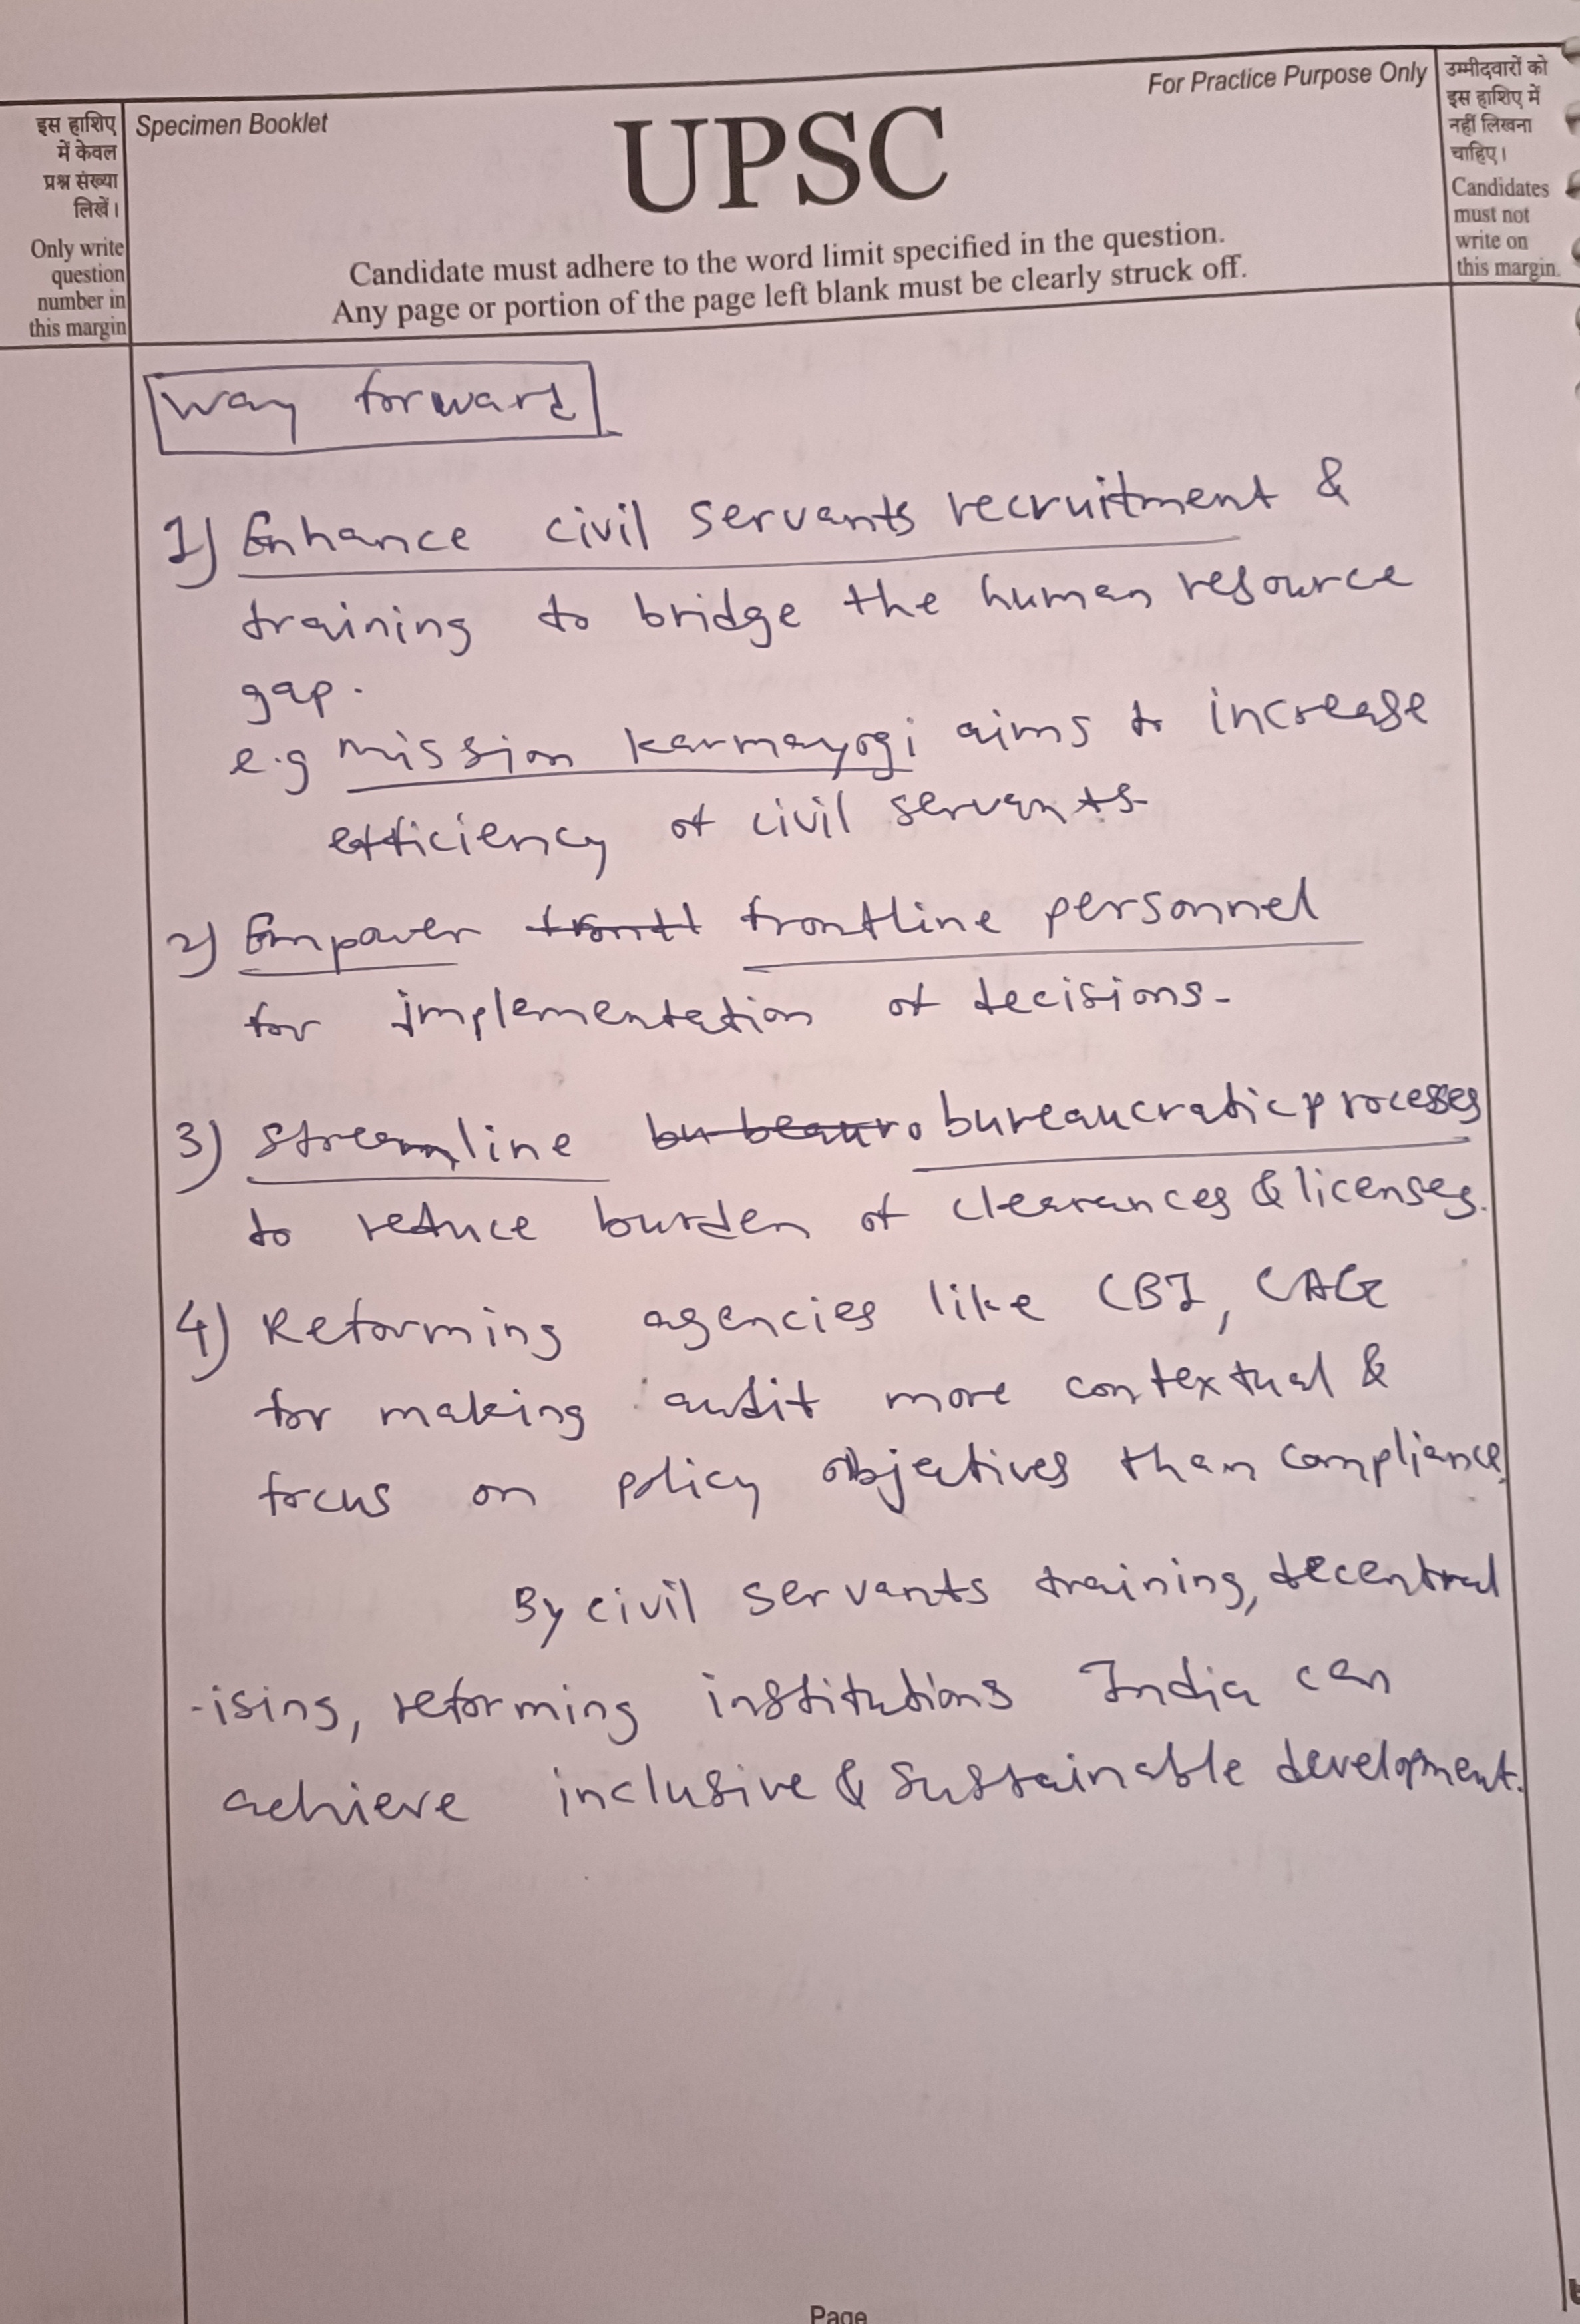 For Practice Purpose Only
Specimen Booklet
UPSC
इस हाशिए
में केवल
प्रश्न संख्या
लिखें।
Only write
question
number in
this margin
उम्मीदवारों को
इस हाशिए में
नहीं लिखना
चाहिए।
Candidates
must not
write on
this margin.
Candidate must adhere to the word limit specified in the question.
Any page or portion of the page left blank must be clearly struck off.
Way forward
1) Enhance civil servants recruitment &
training to bridge the human resource
gap.
e.g Mission Karmayogi aims to increase
efficiency of civil servants
2) Empower frontline personnel
for implementation of decisions.
3) Streamline bureaucratic processes
to reduce burden of clearances & licenses.
4) Reforming agencies like CBI, CAG
for making audit more contextual &
focus on policy objectives than compliance.
By civil servants training, decentral
-ising, reforming institutions India can
achieve inclusive & sustainable development.
Page